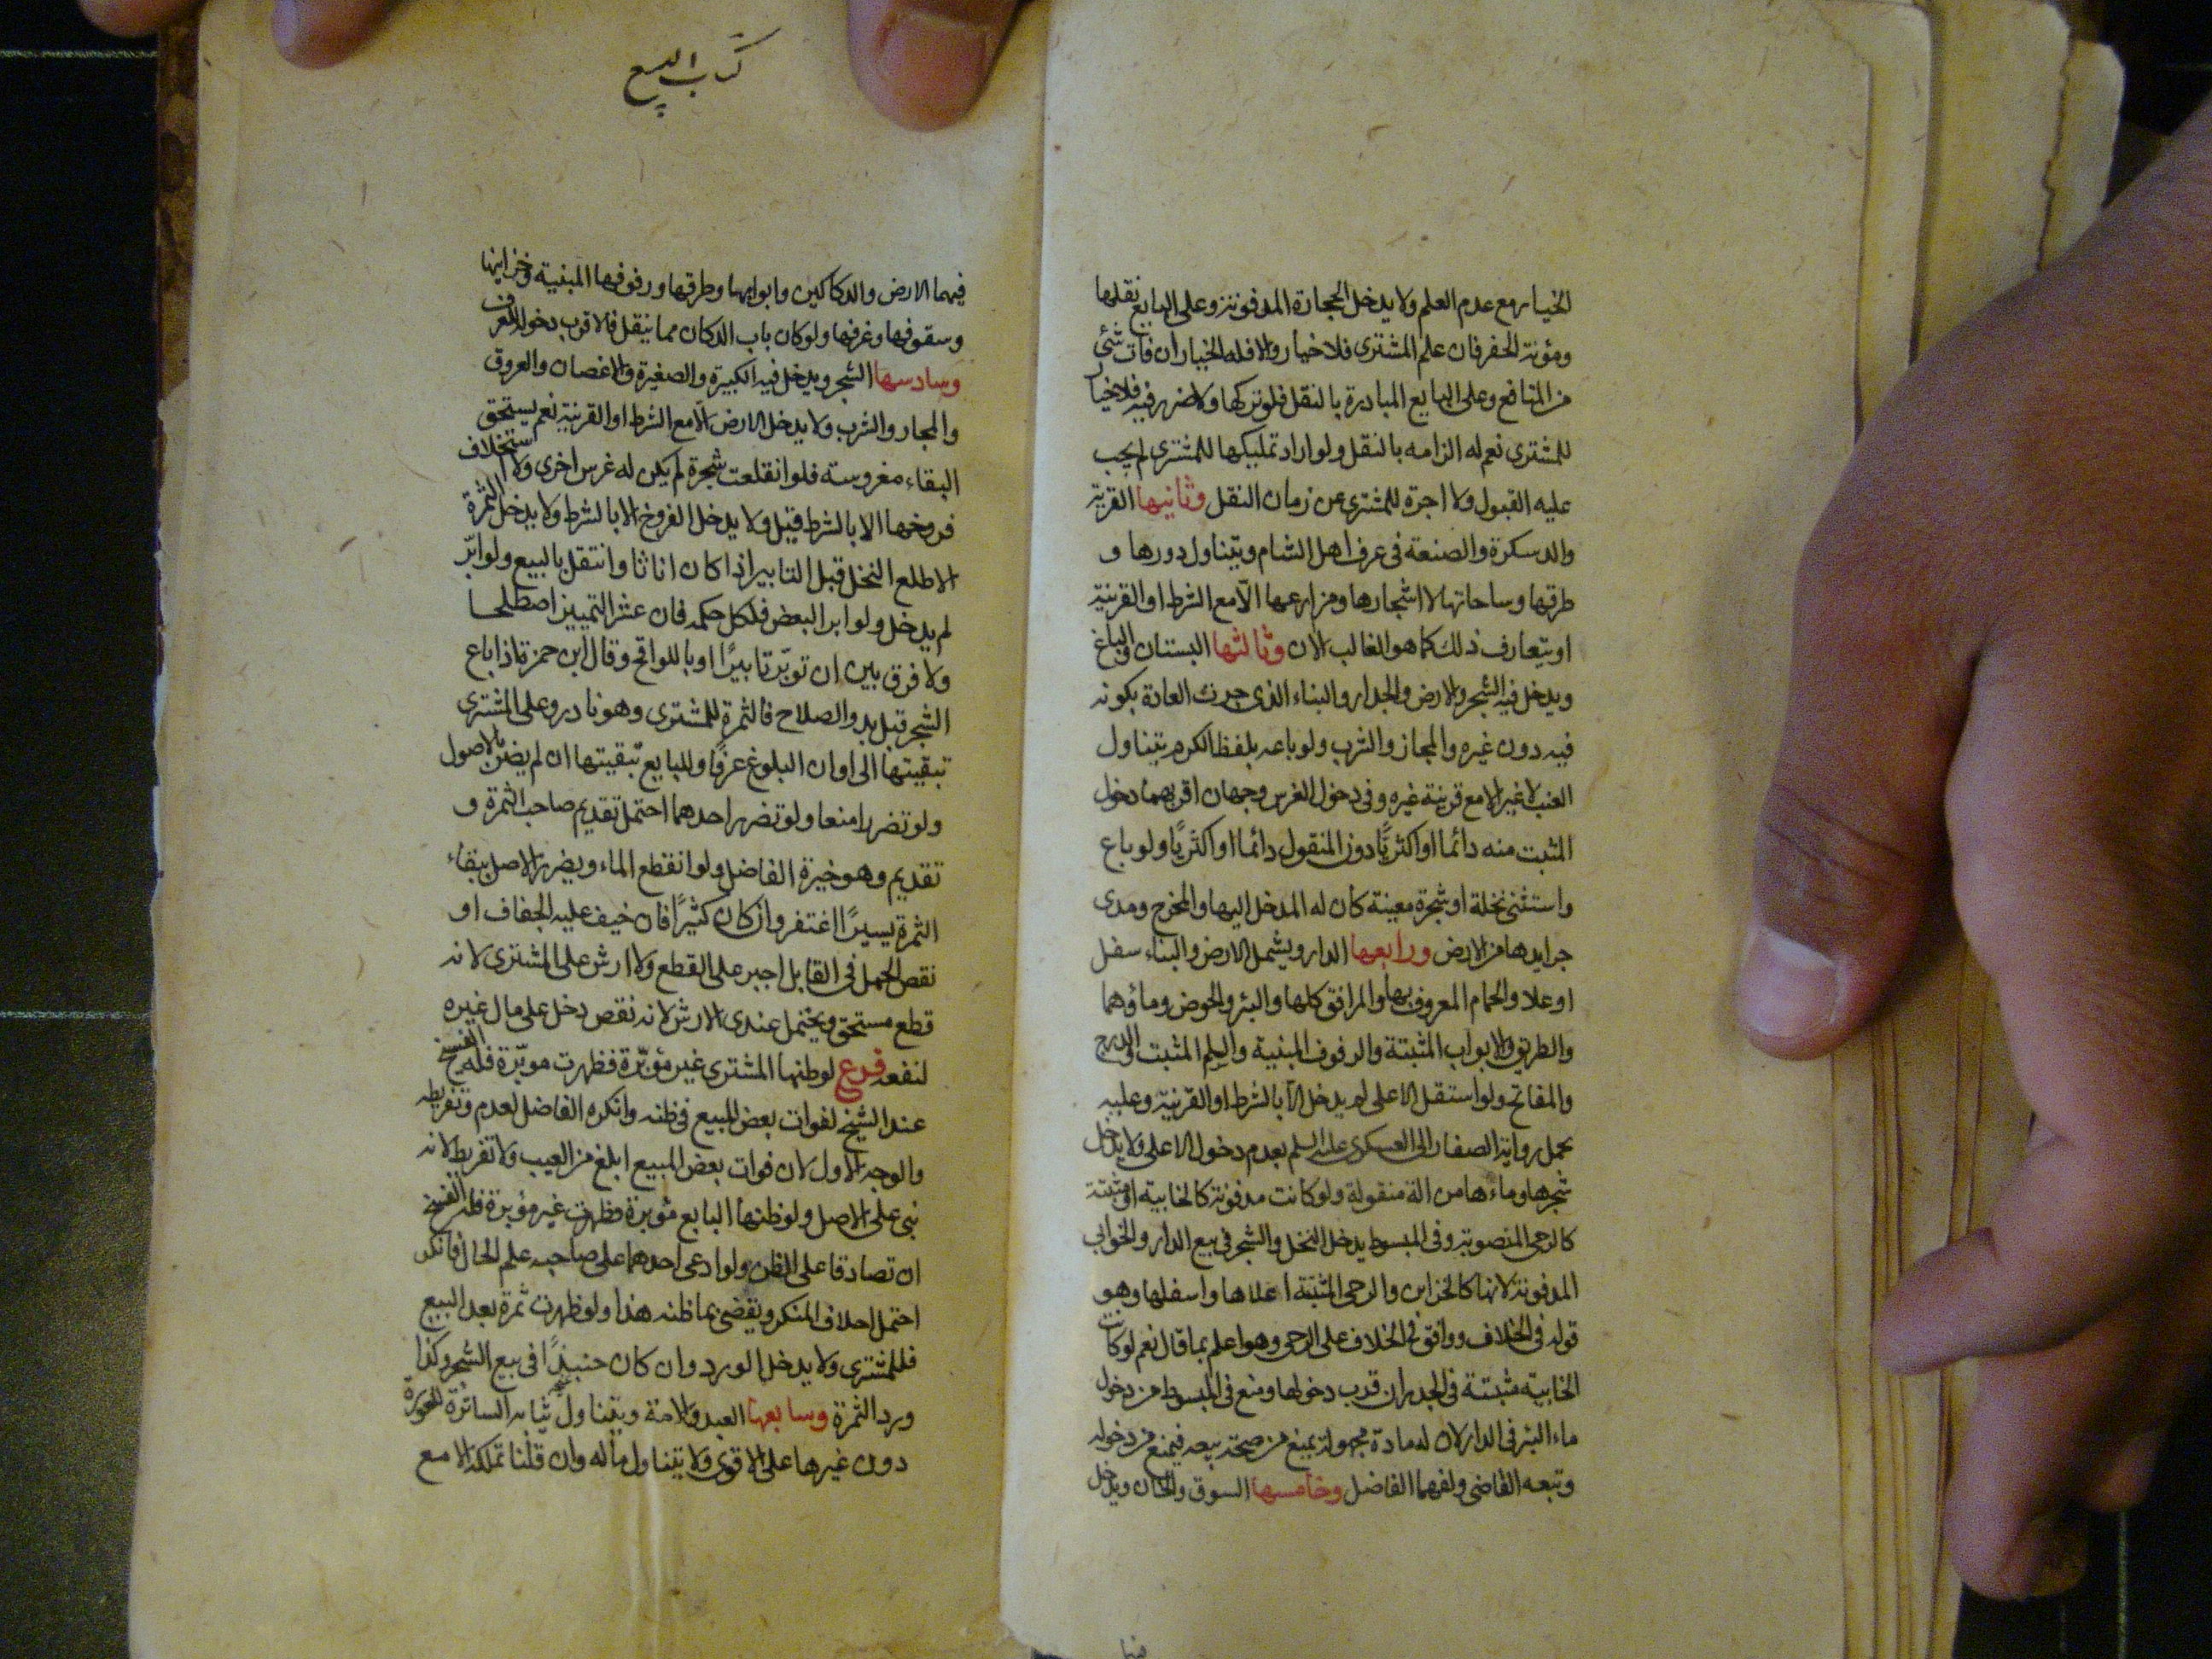 الخيار مع عدم العلم ولا يدخل الحجارة المدفونة وعلى البايع نقلها
ومؤنة الحفر فان علم المشترى فلا خيار والا فله الخيار ان فات شئ
من المنافع وعلى البايع المبادرة بالنقل فلو تركها ولا ضرر فيه فلا خيار
للمشترى نعم له الزامه بالنقل ولو اراد تمليكها للمشترى لم يجب
عليه القبول ولا اجرة للمشترى عن زمان النقل وثانيها القرية
والدسكرة والضيعة فى عرف اهل الشام ويتناول دورها و
طرقها وساحاتها لا اشجارها ومزارعها الّا مع الشرط او القرنية
او يتعارف ذلك كما هو الغالب الان وثالثها البستان والباغ
ويدخل فيه الشجر والارض والجدار والبناء الذى جرت العادة بكونه
فيه دون غيره والمجاز والشرب ولو باعه بلفظ الكرم يتناول
العنب لا غير الا مع قرنية غيره وفى دخول الغرس وجهان اقربهما دخول
المثبت منه دائما او اكثريًا دون المنقول دائما او اكثريًا ولو باع
واستثنى نخلة او شجرة معينة كان له المدخل اليها والمخرج ومدى
جرايدها من الارض ورابعها الدار ويشمل الارض والبناء سفل
او علا والحمام المعروف بها والمرافق كلها والبئر والحوض وماؤهما
والطريق والابواب المثبتة والرفوف المبنية والسلم المثبت والدرج
والمفاتح ولو استقل الاعلى لم يدخل الّا بالشرط او القرنية وعليه
يحمل رواية الصفار الى العسكرى عليه السلم بعدم دخول الاعلى ولا يدخل
شجرها وماءها من الة منقولة ولو كانت مدفونة كالخابية او مثبتة
كالرحى المنصوبة وفى المبسوط يدخل النخل والشجر فى بيع الدار والخوابى
المدفونة لانها كالخزاين والرحى المثبتة اعلاها واسفلها وهو
قوله فى الخلاف ووافق فى الخلاف على الرحى وهو اعلم بما قال نعم لو كانت
الخابية مثبتة فى الجدران قرب دخولها ومنع فى المبسوط من دخول
ماء البئر فى الدار لان له مادة مجهولة يمنع من صحة بيعه فيمنع من دخوله
وتبعه القاضى ولفهما الفاضل وخامسها السوق والخان ويدخل
كتاب البيع
فيهما الارض والدكاكين وابوابها وطرقها ورفوفها المبنية وخزاينها
وسقوفها وغرفها ولو كان باب الدكان مما ينقل فالاقرب دخوله للعرف
وسادسها الشجر ويدخل فيه الكبيرة والصغيرة والاغصان والعروق
والمجاز والشرب ولا يدخل الارض الّا مع الشرط او القرنية نعم يستحق
البقاء مغروسته فلو انقلعت شجرة لم يكن له غرس اخرى ولا استخلاف
فروخها الا بالشرط قيل ولا يدخل الفروخ الا بالشرط ولا يدخل الثمرة
الا طلع النخل قبل التابير اذا كان اناثا وانتقل بالبيع ولو ابّر
لم يدخل ولو ابر البعض فلكل حكمه فان عسر التمييز اصطلحا
ولا فرق بين ان توبّر تابيرًا او باللواقح وقال ابن حمزة اذا باع
الشجر قبل بدو الصلاح فالثمرة للمشترى وهو نادر وعلى المشترى
تبقيتها الى اوان البلوغ عرفًا وللبايع تبقيتها ان لم يضر بالاصول
ولو تضررا منعا ولو تضرر احدهما احتمل تقديم صاحب الثمرة و
تقديم وهو خيرة الفاضل ولو انقطع الماء ويضرر الاصل ببقاء
الثمرة يسيرًا اغتفر وان كان كثيرًا فان خيف عليه الجفاف او
نقص الحمل فى القابل اجبر على القطع ولا ارش على المشترى لانه
قطع مستحق ويحتمل عندى الارش لانه نقص دخل على مال غيره
لنفعه فرع لو ظنها المشترى غير مؤبّرة فظهرت موبّرة فله الفسخ
عند الشيخ لفوات بعض المبيع فى ظنه وانكره الفاضل لعدم وتفريطه
والوجه الاول لان فوات بعض المبيع ابلغ من العيب ولا تفريط لانه
نبى على الاصل ولو ظنها البايع مؤبرة فظهرت غير مؤبرة فله الفسخ
ان تصادقا على الظن ولو ادعى احدهما على صاحبه علم الحال فانكر
احتمل احلاف المنكر ويقضى بما ظنه هذا ولو ظهرت ثمرة بعد البيع
فللمشترى ولا يدخل الورد وان كان جنبذًا فى بيع الشجر وكذا
ورد الثمرة وسابعها العبد والامة ويتناول ثيابه الساترة للعورة
دون غيرها على الاقوى ولا يتناول ماله وان قلنا تملكه الا مع